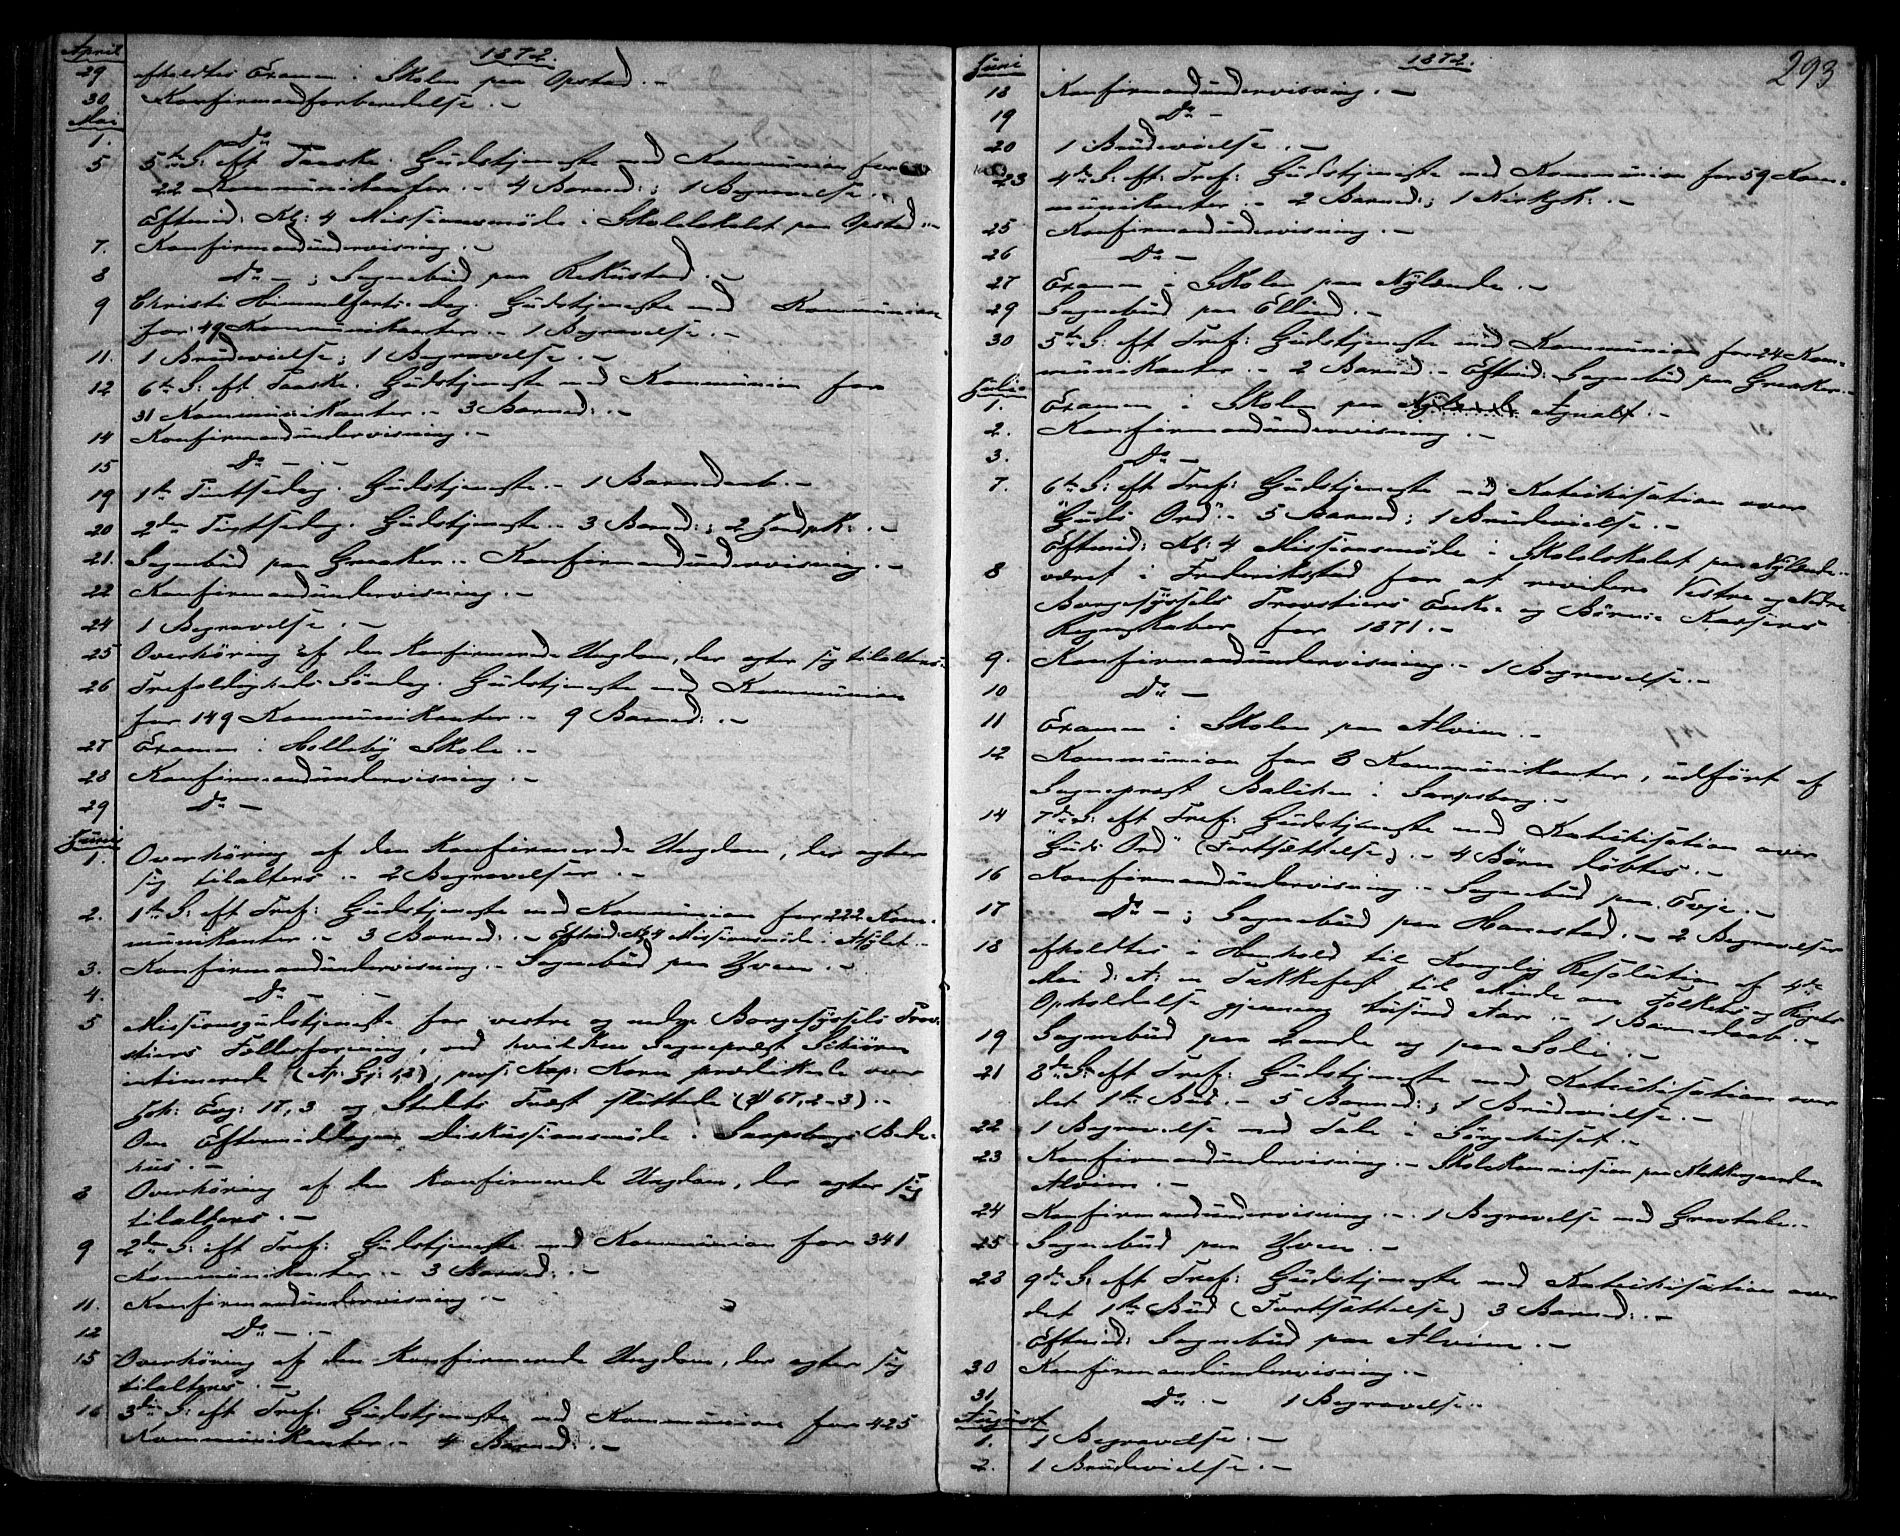 April 1872.
29 afholdtes Examen i Skolen paa Opstad.-
30 Konfirmandforberedelse.-
Mai
1. Do
5 5te S: eft Paaske. Gudstjeneste med Kommunion for
22 Kommunikanter.- 4 Barned:; 1 Begravelse.-
Eftmid: Kl: 4 Missionsmöde i Skolelokalet paa Opstad.-
7. Konfirmandundervisning.-
8 Do - ; Sognebud paa Rekustad.-
9 Christi Himmelfarts-dag. Gudstjeneste med Kommunion
for 49 Kommunikanter.- 1 Begravelse.-
11. 1 Brudevielse; 1 Begravelse.-
12 6te S: eft Paaske. Gudstjeneste med Kommunion for
31 Kommunikanter.- 3 Barned:.-
14 Konfirmandundervisning.-
15 Do - . -
19 1te Pintsedag. Gudstjeneste.- 1 Barnedaab.-
20 2den Pintsedag. Gudstjeneste.- 3 Barned:; 2 Jordpk:.-
21. Sognebud paa Greaker.- Konfirmandundervisning.-
22 Konfirmandundervisning.-
24 1 Begravelse.-
25 Overhöring af den konfirmerede Ungdom, der agter sig tilalters.
26 Trefoldigheds Söndag. Gudstjeneste med Kommunion
for 149 Kommunikanter.- 9 Barned:.-
27 Examen i Holleby Skole.-
28 Konfirmandundervisning.-
29 Do -
Juni
1. Overhöring af den konfirmerede Ungdom, der agter
sig tilalters.- 2 Begravelser.-
2. 1te S: eft Tref: Gudstjeneste med Kommunion for 222 Kom-
munikanter.- 3 Barned:.- Eftmid: Kl 4 Missionsmöde i Asylet.-
3. Konfirmandundervisning.- Sognebud paa Hveen.-
4. Do
5 Missionsgudstjeneste for vestre og nedre Borgesyssels Prov-
stiers Fællesforening, ved hvilken Sogneprest Schiörn
intimerede (Ap: Gj: 1,8), pers: Kap: Korn prædikede over
Joh: Evg: 17,3 og Stedets Præst sluttede (ψ 67, 2-3).-
Om Eftermiddagen Diskussionsmöde i Sarpsborgs Bede-
hus.-
8 Overhöring af den konfirmerede Ungdom, der agter sig
tilalters.-
9 2den S: eft Tref: Gudstjeneste med Kommunion for 341
Kommunikanter.- 3 Barned:.-
11. Konfirmandundervisning.-
12 Do - . -
15 Overhöring af den konfirmerede Ungdom, der agter sig
tilalters.-
16 3die S: eft Tref: Gudstjeneste med Kommunion for 425
Kommunikanter.- 4 Barned:.-
Juni 1872. 293
18 Konfirmandundervisning.-
19 Do -
20 1 Brudevielse.-
23 4de S: eft: Tref: Gudstjeneste med Kommunion for 59 Kom-
munikanter.- 2 Barned:; 1 Kirkgk:.-
25 Konfirmandundervisning.-
26 Do -
27 Examen i Skolen paa Nylænde.-
29 Sognebud paa Ellind.-
30 5te S: eft Tref: Gudstjeneste med Kommunion for 24 Kom-
munikanter.- 2 Barned.- Eftmid: Sognebud paa Greaker.-
Juli
1. Examen i Skolen paa Agnalt.-
2. Konfirmandundervisning.-
3. Do -
7. 6te S: eft Tref: Gudstjeneste med Katekisation over
"Guds Ord".- 5 Barned; 1 Brudevielse.-
Eftmid: Kl: 4 Missionsmöde i Skolelokalet paa Nylænde.-
8 været i Frederikstad for at revidere Vestre og Nedre
Borgesyssels Provstiers Enke- og Börne-Kassers
Regnskaber for 1871.-
9. Konfirmandundervisning.- 1 Begravelse.-
10 Do -
11 Examen i Skolen paa Alvim.-
12 Kommunion for 8 Kommunikanter, udfört af
Sogneprest Balchen i Sarpsborg.-
14 7de S: eft Tref: Gudstjeneste med Katekisation over
"Guds Ord" (Fortsættelse).- 4 Börn döbtes.-
16 Konfirmandundervisning.- Sognebud paa Evje.-
17 Do - ; Sognebud paa Hannestad.- 2 Begravelser
18 afholdtes i Henhold til Kongelig Resolution af 4de
Mai d: A: en Takkefest til Minde om Folkets og Rigets
Opholdelse gjennem tusind Aar.- 1 Barnedaab.-
19 Sognebud paa Lande og paa Soli.-
21 8de S: eft Tref: Gudstjeneste med Katekisation over
det 1te Bud.- 5 Barned:; 1 Brudevielse.-
22 1 Begravelse med Tale i Sörgehuset.-
23 Konfirmandundervisning.- Skolekommission paa Klokkergaarden
Alvim.-
24 Konfirmandundervisning.- 1 Begravelse med Gravtale.-
25 Sognebud paa Hveen.-
28 9de S: eft Tref: Gudstjeneste med Katekisation over
det 1te Bud (Fortsættelse) 3 Barned:.-
Eftmid: Sognebud paa Alvim.-
30 Konfirmandundervisning.-
31 Do .- 1 Begravelse.-
August
1. 1 Begravelse.-
2. 1 Brudevielse.-